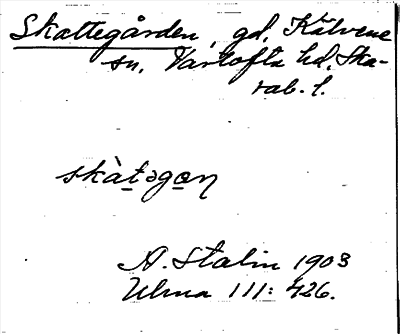 Skattegården, gd, Kälvene
sn, Vartofta hd, Ska-
rab. l.
skàt̲əgo̲n
A. Stalin 1903
Ulma 111: 426.